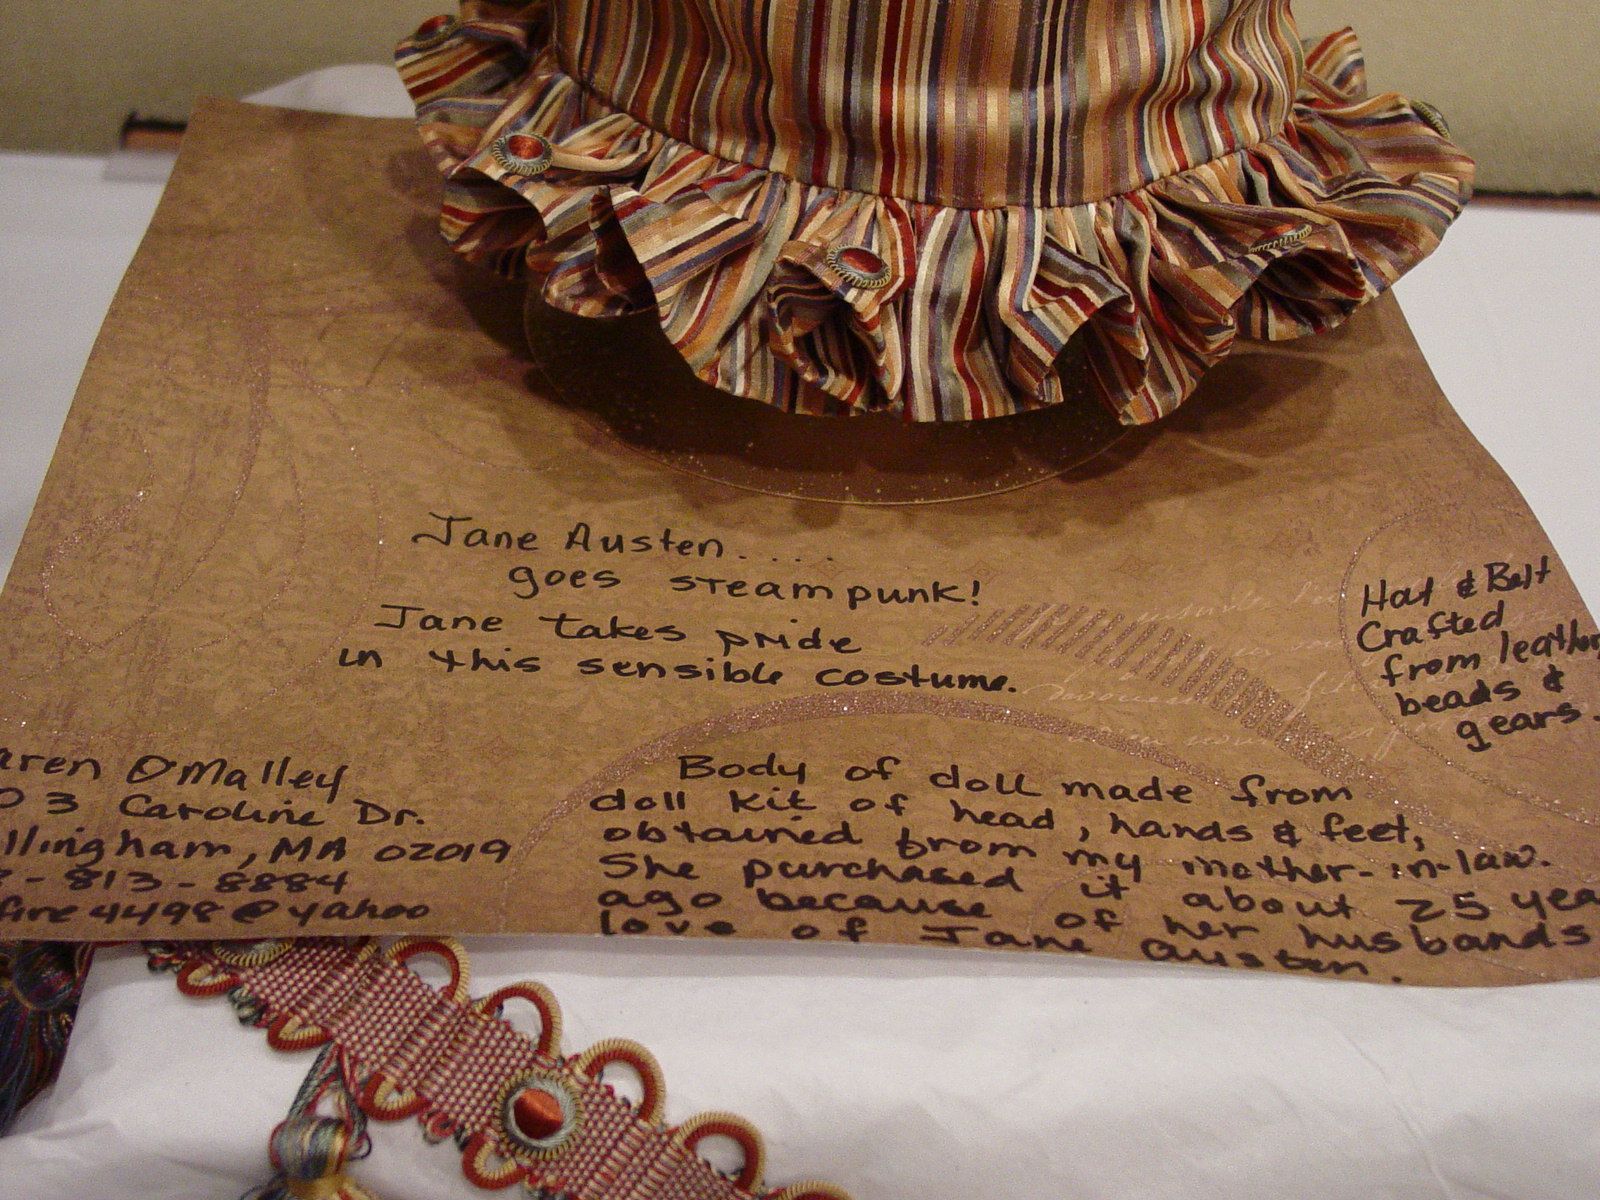 Jane Austen.....
goes steampunk!
Jane takes pride
in this sensible costume.
Hat & Belt
Crafted
from leather,
beads &
gears.
aren O'Malley
03 Caroline Dr.
llingham, MA 02019
- 813 - 8884
fire4498@yahoo
Body of doll made from
doll kit of head, hands & feet,
obtained from my mother-in-law.
She purchased it about 25 yea
ago because of her husbands
love of Jane Austen.